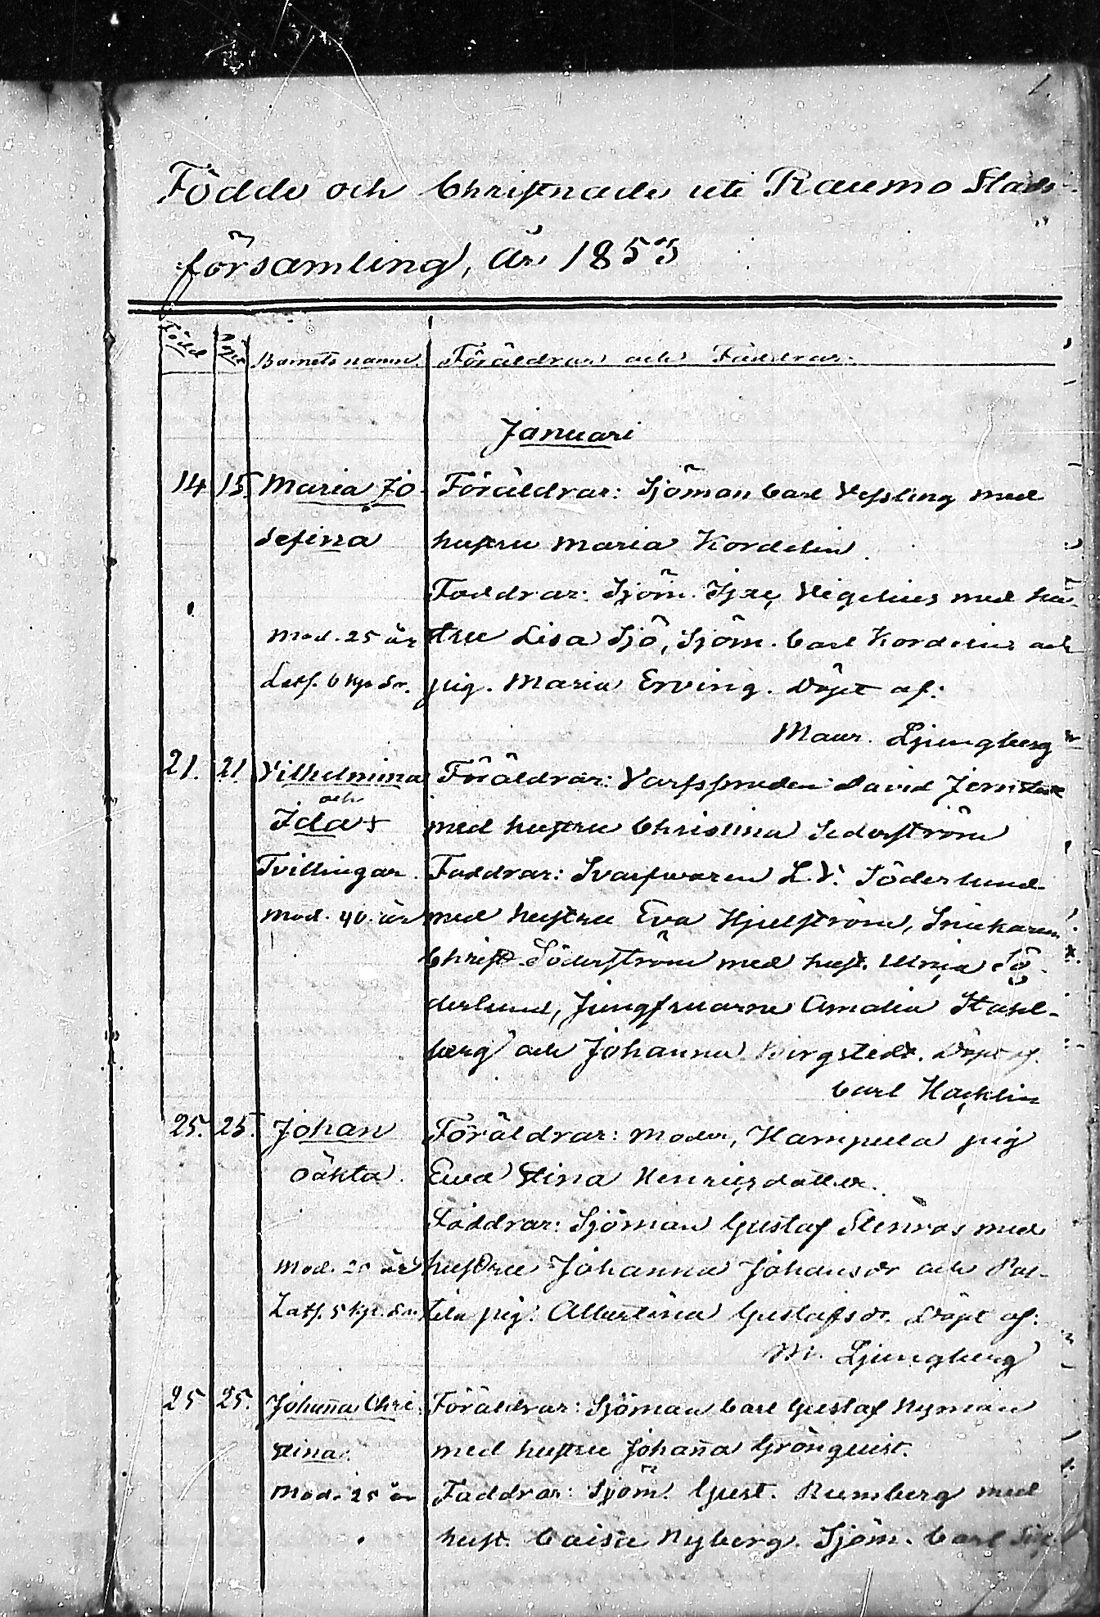 1.
Födde och Christnade uti Raumo Stads
församling, År 1853
Född Döpt Barnets namn Föräldrar och Faddrar.
Januari
14 15. Maria Jo- Föräldrar: Sjöman Carl Vessling med
sefina hustru Maria Kordelin.
Faddrar: Sjöm. Vigelius med hu-
Mod. 25 år stru Lisa Sjö, Sjöm. Carl Kordelin och
pig. Maria Erving. Döpt af:
Maur. Ljungberg
21. 21 Vilhelmina Föräldrar: David
och
Ida + med hustru Christina Sederström
Tvillingar. Faddrar: Svarfvaren L.V. Söderlund
Mod. 40 år med hustru Eva Hjelström, Snickaren
Christ. Söderström med hust. Ulrica Sö-
derlund, Jungfruarne Amalia Stahl-
berg och Johanna Birgstedt. Döpt af.
Carl Hacklin
25. 25. Johan Föräldrar: Moder, Hampula pig
oäkta. Eva Stina Henricsdotter.
Faddrar: Sjöman Gustaf Stenros med
Mod. 20 år hustru Johanna Johansdr och
pig: Albertina Gustafsdr. Döpt af:
M. Ljungberg
25 25. Johanna Chri- Föräldrar: Sjöman Carl Gustaf Nyman
stina. med hustru Johanna Grönquist.
Mod. 25 år Faddrar: Sjöm. Gust. Rumberg med
hust. Caisa Nyberg. Sjöm. Carl